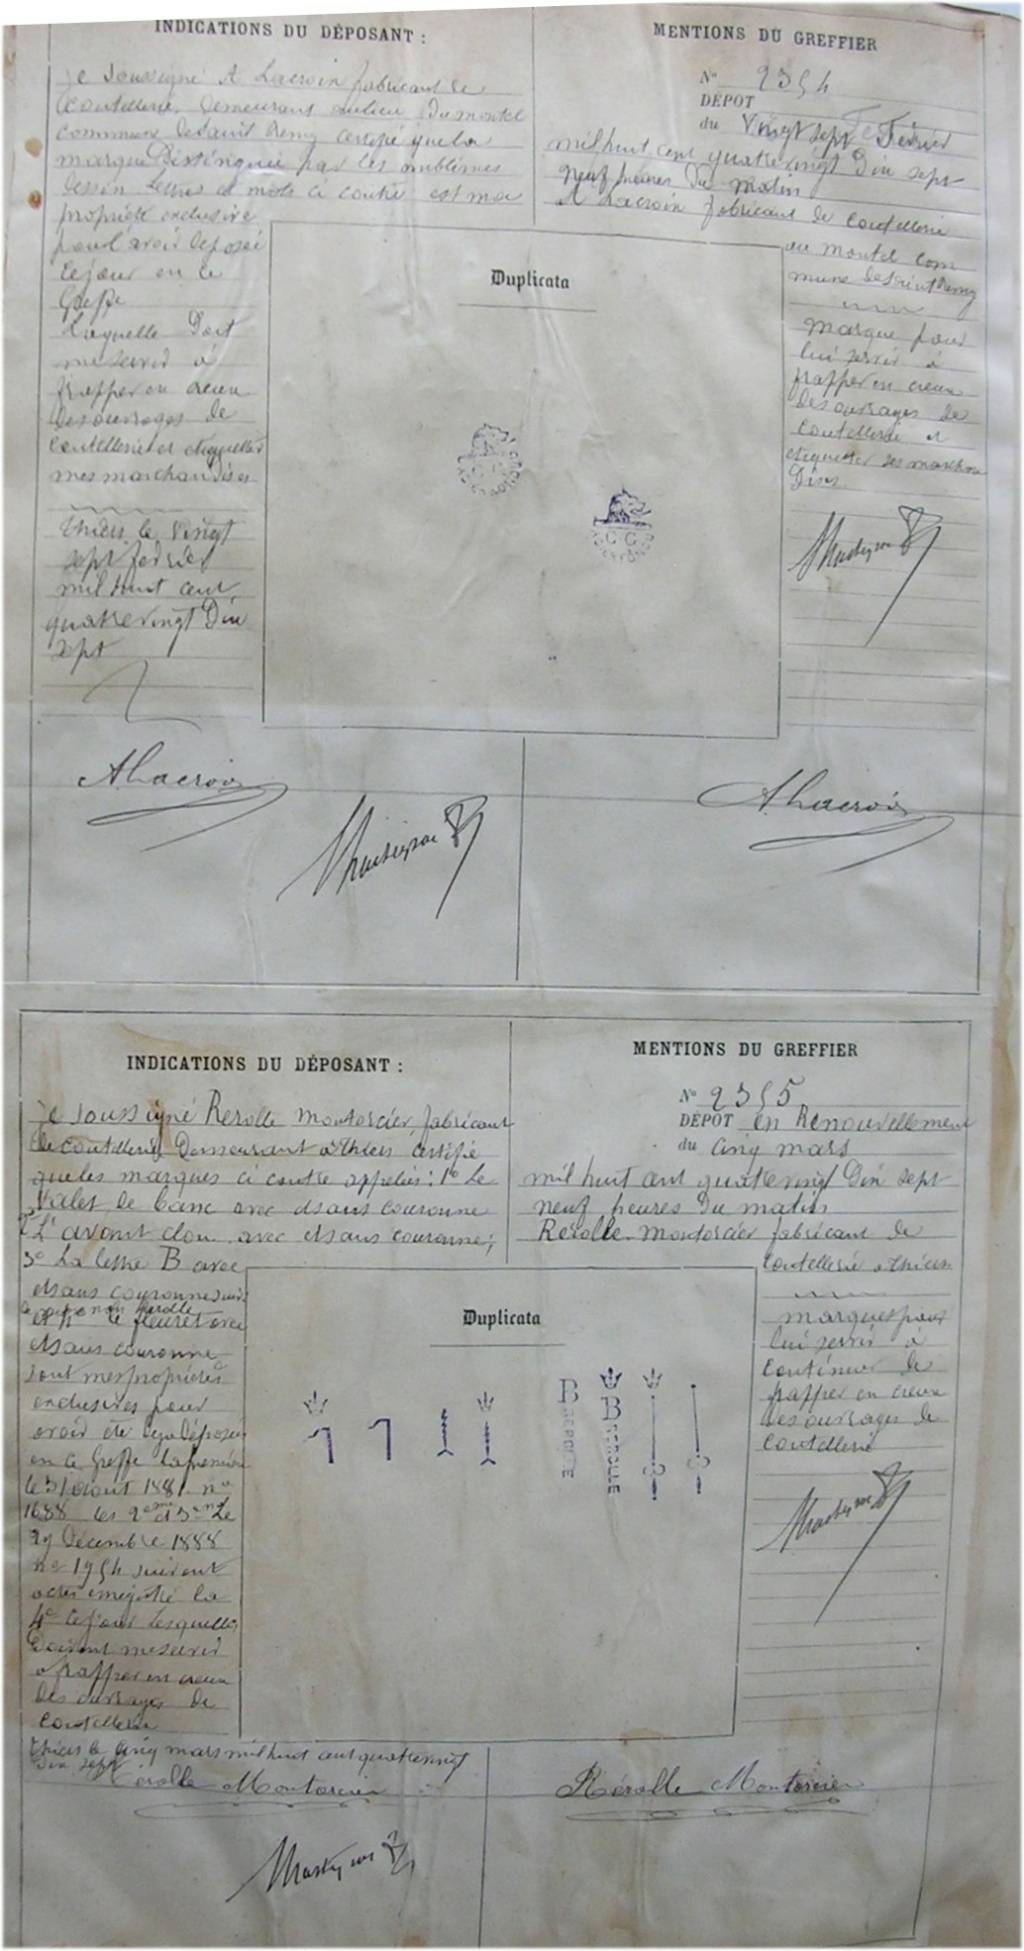 INDICATIONS DU DÉPOSANT :
Je soussigné A Lacroix fabricant de
coutellerie, demeurant au lieu Du montel
commune de saint Remy certifie que la
marque Distinguée par les emblèmes
dessin lettres et mots ci contre est ma
propriété exclusive
pour l'avoir déposée
ce jour en ce
Greffe
Laquelle Doit
me servir à
frapper en creux
des ouvrages de
coutellerie et étiquetter
mes marchandises
Thiers le vingt
sept février
mil huit cent
quatre vingt Dix
sept
ALacroix
MENTIONS DU GREFFIER
N° 2354
DÉPOT
du Vingt sept Février
mil huit cent quatre vingt Dix sept
neuf heures Du matin
A Lacroix fabricant de coutellerie
au montel com
mune de saint Remy
marque pour
lui servir à
frapper en creux
des ouvrages de
coutellerie et
étiquetter ses marchan
Dises
Duplicata
C.G
ALacroix
INDICATIONS DU DÉPOSANT :
Je soussigné Rérolle Montorcier, fabricant
de coutellerie Demeurant à Thiers certifie
que les marques ci contre appelées : 1° Le
Valet de banc avec et sans couronne
2° L'avant clou avec et sans couronne,
3° La lettre B avec
et sans couronne suivie
de son nom Rérolle
et 4° le fleuret avec
et sans couronne
sont mes propriétés
exclusives pour
avoir été déjà déposées
en ce Greffe la première
le 31 août 1881 n°
1688 les 2eme et 3eme Le
29 Décembre 1888
n° 1954 suivant
actes enregistré la
4e ce jour lesquelles
Doivent me servir
à frapper en creux
des ouvrages de
coutellerie
Thiers le cinq mars mil huit cent quatre vingt
Dix sept
Rérolle Montorcier
MENTIONS DU GREFFIER
N° 2355
DÉPOT en Renouvellement
du cinq mars
mil huit cent quatre vingt Dix sept
neuf heures Du matin
Rérolle-Montorcier fabricant de
coutellerie à Thiers
marques pour
lui servir à
continuer de
frapper en creux
des ouvrages de
coutellerie
Duplicata
B REROLLE
B REROLLE
Rérolle Montorcier